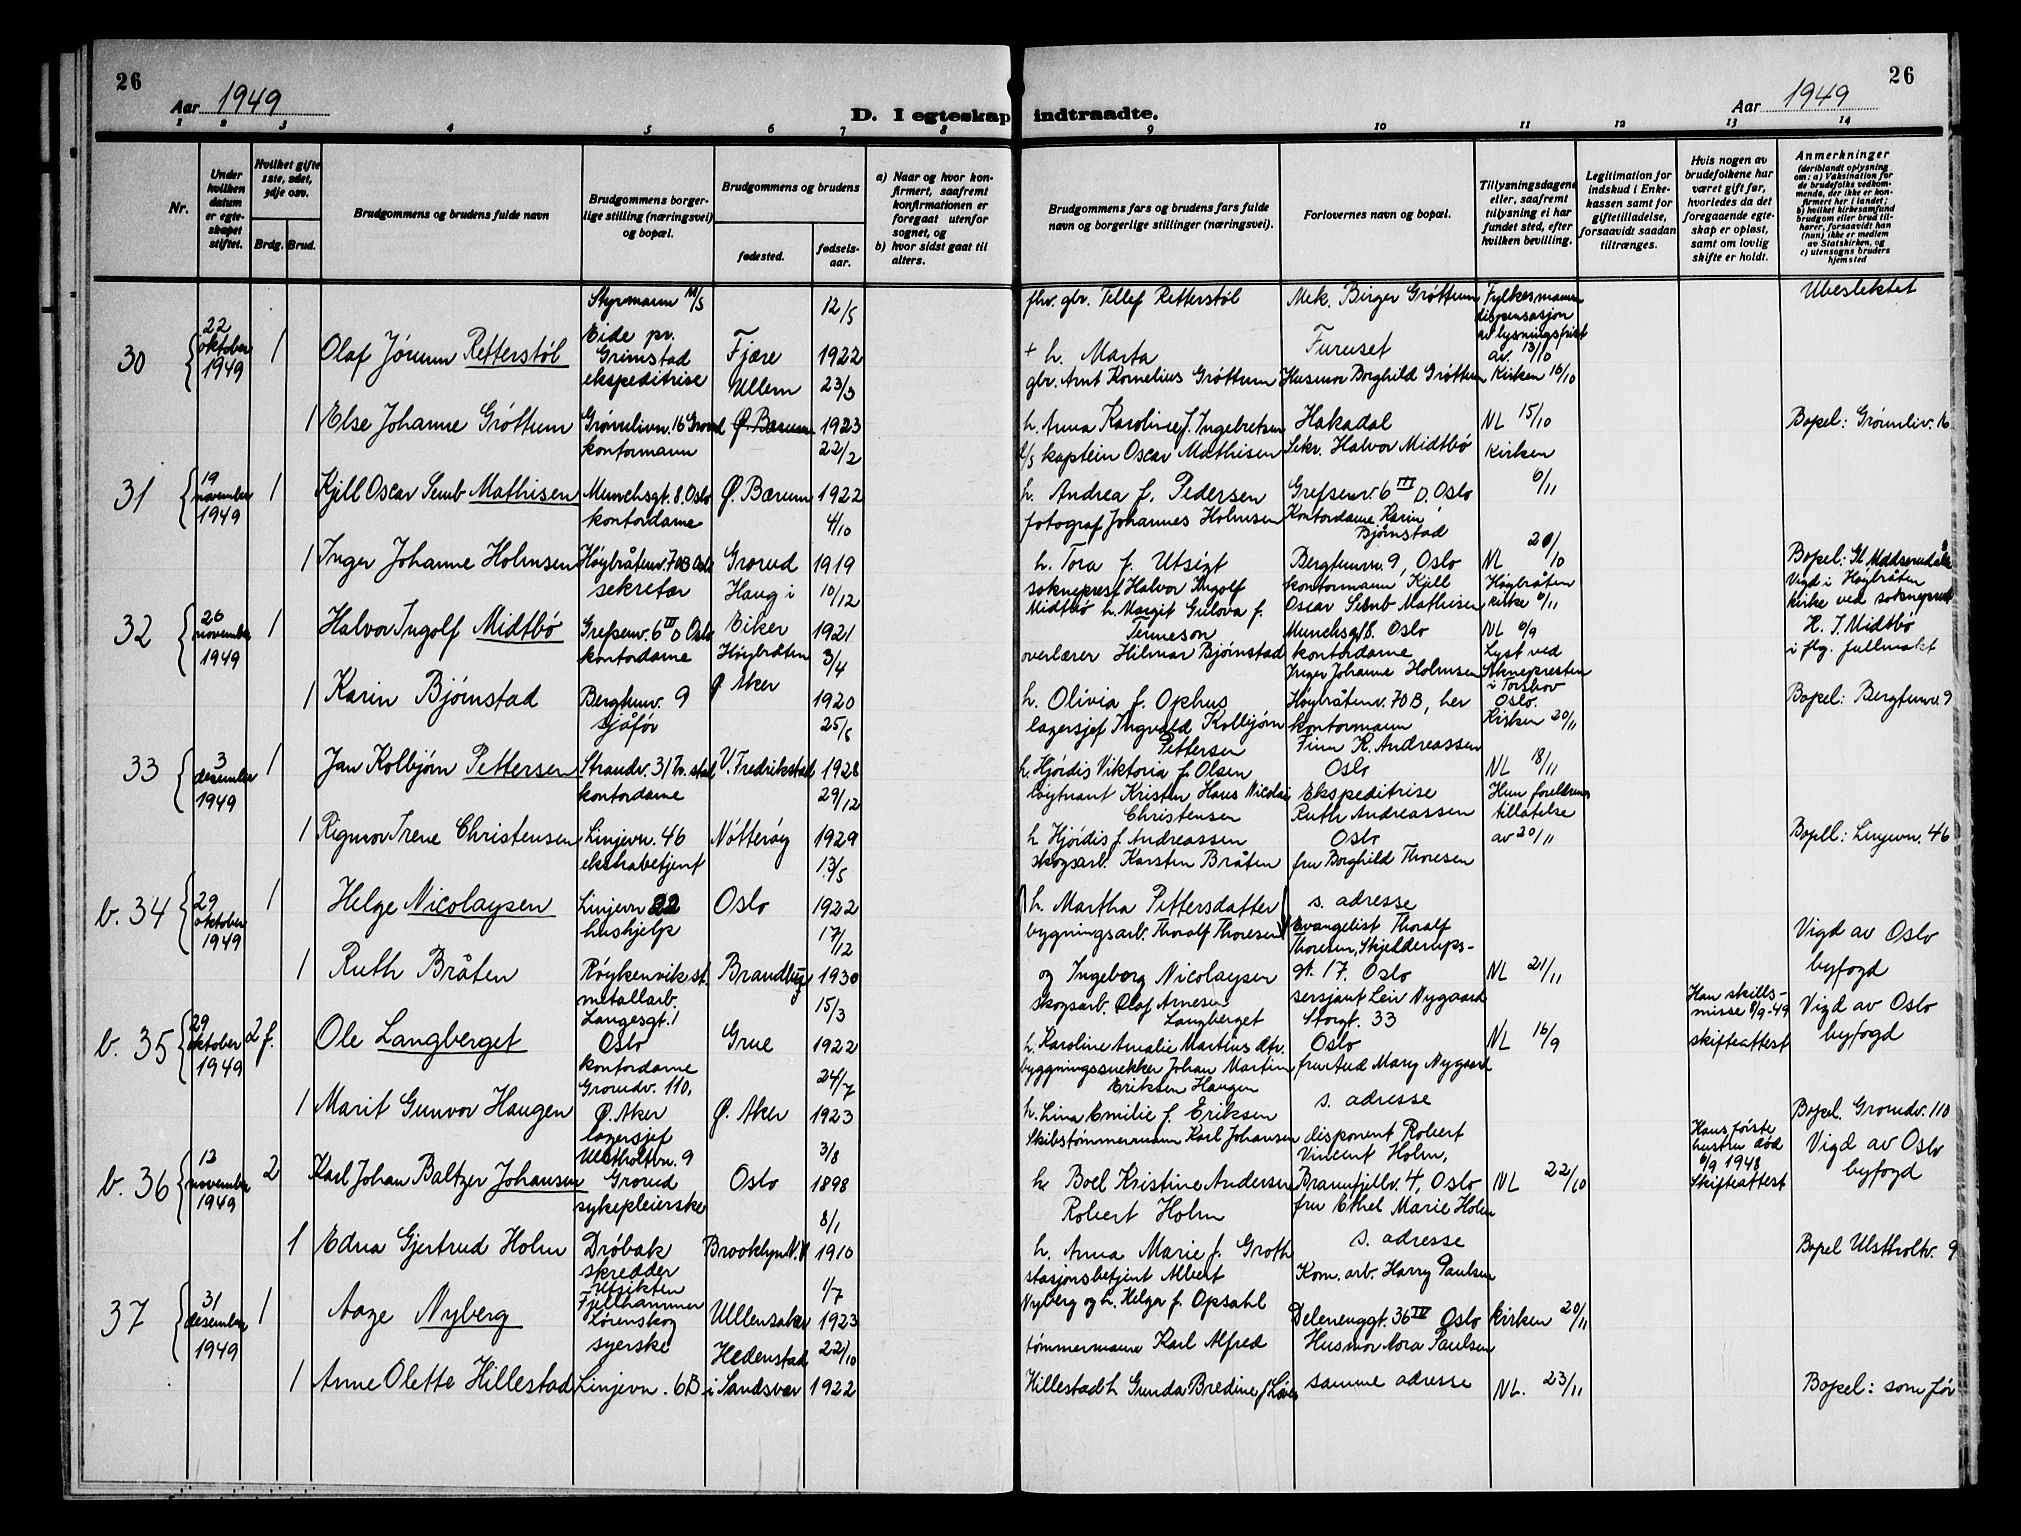 26
Aar 1949
D. I egteskap indtraadte.
Aar 1949
26
1 2 3 4 5 6 7 8 9 10 11 12 13 14
Nr.
Under hvilken datum er egteskapet stiftet.
Hvilket gifte 1ste, 2det, 3dje osv.
Brdg. Brud.
Brudgommens og brudens fulde navn
Brudgommens borgerlige stilling (næringsvei) og bopæl.
Brudgommens og brudens
fødested.
fødselsaar.
a) Naar og hvor konfirmert, saafremt konfirmationen er foregaat utenfor sognet, og
b) hvor sidst gaat til alters.
Brudgommens fars og brudens fars fulde navn og borgerlige stillinger (næringsvei).
Forlovernes navn og bopæl.
Tillysningsdagene eller, saafremt tillysning ei har fundet sted, efter hvilken bevilling.
Legitimation for indskud i Enkekassen samt for giftetilladelse, forsaavidt saadan tiltrænges.
Hvis nogen av brudefolkene har været gift før, hvorledes da det foregaaende egteskap er opløst, samt om lovlig skifte er holdt.
Anmerkninger
(deriblandt oplysning om: a) Vaksination for de brudefolks vedkommende, der ikke er konfirmert her i landet;
b) hvilket kirkesamfund brudgom eller brud tilhører, forsaavidt han (hun) ikke er medlem av Statskirken, og
c) utensogns bruders hjemsted
30
22 oktober 1949
1
Olaf Jörunn Retterstöl
Styrmann M/S Eide pr. Grimstad
Fjære
12/5 1922
fhv. gbr. Tellef Retterstöl
+ h. Marta
Mek. Birger Gröttum
Furuset
Fylkesmannen dispensasjon av lysningsfrist av 13/10
Kirken 16/10
Ubeslektet
1 Else Johanne Gröttum
ekspeditrise
Grönnlivn. 16 Grorud
Ullern
Ø. Bærum
23/3 1923
gbr. Arnt Kornelius Gröttum
h. Anna Karoline f. Ingebretsen
Husmor Borghild Gröttum
Hakadal
NL 15/10
Bopel: Grönnliv. 16
31
19 november 1949
1
Kjell Oscar Semb Mathisen
kontormann
Munchsgt. 8. Oslo
Ø. Bærum
22/2 1922
d/s kaptein Oscar Mathisen
h. Andrea f. Pedersen
Sekr. Halvor Midtbö
Grefsenv. 6 III O. Oslo
Kirken 6/11
1 Inger Johanne Holmsen
kontordame
Höybråtenv. 70B Oslo
Grorud
4/10 1919
fotograf Johannes Holmsen
h. Tora f. Utsigt
Kontordame Karin Bjørnstad
Bergtunvn. 9, Oslo
NL 20/10
32
26 november 1949
1
Halvor Ingolf Midtbö
sekretær
Grefsenv. 6 III O Oslo
Haug i Eiker
10/12 1921
sokneprest Halvor Ingolf Midtbö h. Margit Gulova f. Tenneson
kontormann Kjell Oscar Semb Mathisen
Munchsgt 8. Oslo
Höybråten kirke 6/11
NL 6/9
Vigd i Höybråten kirke ved sokneprest H. I. Midtbö i flg. fullmakt
1 Karin Bjørnstad
kontordame
Bergtunv. 9
Höybråten Ø Aker
3/4 1920
overlærer Hilmar Bjørnstad
h. Olivia f. Ophus
kontordame Inger Johanne Holmsen
Höybråtenv. 70B, her
Lyst ved Soknepresten i Torshov Oslo.
Bopel: Bergtunv. 9
33
3 desember 1949
1
Jan Kolbjörn Pettersen
sjåför
Strandv. 31
V. Fredrikstad
25/8 1928
lagersjef Ingvald Kolbjörn Pettersen
h. Hjördis Viktoria f. Olsen
kontormann Finn R. Andreassen
Oslo
Kirken 20/11
NL 18/11
1 Rigmor Irene Christensen
kontordame
Linjevn. 46
Nötteröy
29/12 1929
löytnant Kristen Hans Nicolai Christensen
h Hjördis f Andreassen
Ekspeditrise Ruth Andreassen
Oslo
Hun foreldrenes tillatelse av 20/11
Bopel: Linjevn. 46
b. 34
29 oktober 1949
1
Helge Nicolaysen
ekstrabetjent
Linjevn 22
Oslo
13/5 1922
skogsarb. Karsten Bråten
h. Martha Pettersdatter
fru Borghild Thoresen
s. adresse
Vigd av Oslo byfogd
1 Ruth Bråten
hushjelp
Röykenvik st.
Brandbu
17/12 1930
bygningsarb. Thoralf Thoresen
og Ingeborg Nicolaysen
Evangelist Thoralf Thoresen, Skjelderups-
gt. 17. Oslo
NL 21/11
b. 35
29 oktober 1949
2 f.
Ole Langberget
metallarb.
Langesgt. 1 Oslo
Grue
15/3 1922
skogsarb. Olaf Arnesen Langberget
h. Karoline Amalie Martius dtr.
sersjant Leiv Nygaard
Storgt. 33 Oslo
NL 16/9
Han skillsmisse 8/9-49
skifteattest
Vigd av Oslo byfogd
1 Marit Gunvor Haugen
kontordame
Grorudv. 110, Ø. Aker
Ø. Aker
24/7 1923
byggningssnekker Johan Martin Eriksen Haugen
h. Lina Emilie f. Eriksen
fru Aud Mary Nygaard
s. adresse
Bopel. Grorudv. 110
b. 36
12 november 1949
2
Karl Johan Baltzer Johansen
lagersjef
Ulstholtvn. 9 Grorud
Oslo
3/8 1898
Skibstömmermann Karl Johansen
h. Boel Kristine Andersen
disponent Robert Vincent Holm,
Brannfjellv. 4, Oslo
NL 22/10
Hans förste hustru död 6/9 1948
Skifteattest
Vigd av Oslo byfogd
1 Edna Gjertrud Holm
sykepleierske
Dröbak
Brooklyn N.Y.
8/1 1910
Robert Holm
h. Anna Marie f. Groth
fru Ethel Marie Holm
s. adresse
Bopel Ulstholtv. 9
37
31 desember 1949
1
Aage Nyberg
skredder
Utsikten Fjellhammer Lörenskog
Ullensaker
1/7 1923
stasjonsbetjent Albert Nyberg og h. Helga f. Opsahl
Kom. arb. Harry Paulsen
Delenenggt. 36 IV Oslo
kirken 20/11
1 Anne Olette Hillestad
syerske
Linjevn. 6B
Hedenstad i Sandsvær
22/10 1922
tömmermann Karl Alfred
Hillestad h Gunda Bredine
Husmor Nora Paulsen
samme adresse
NL. 23/11
Bopel: som för